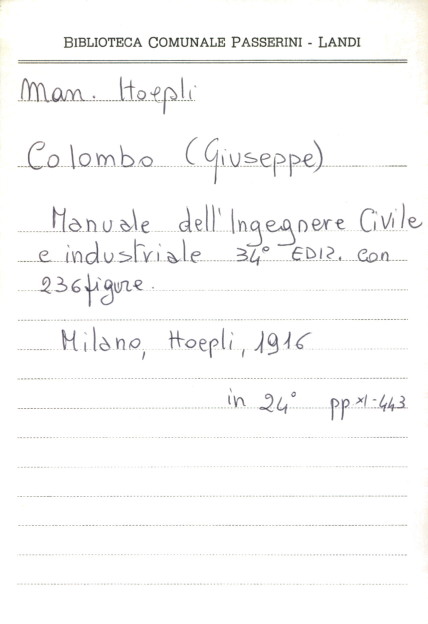 BIBLIOTECA COMUNALE PASSERINI - LANDI
Man. Hoepli
Colombo (Giuseppe)
Manuale dell'Ingegnere Civile
e industriale 34° EDIZ. con
236 figure.
Milano, Hoepli, 1916
in 24° pp XI-443